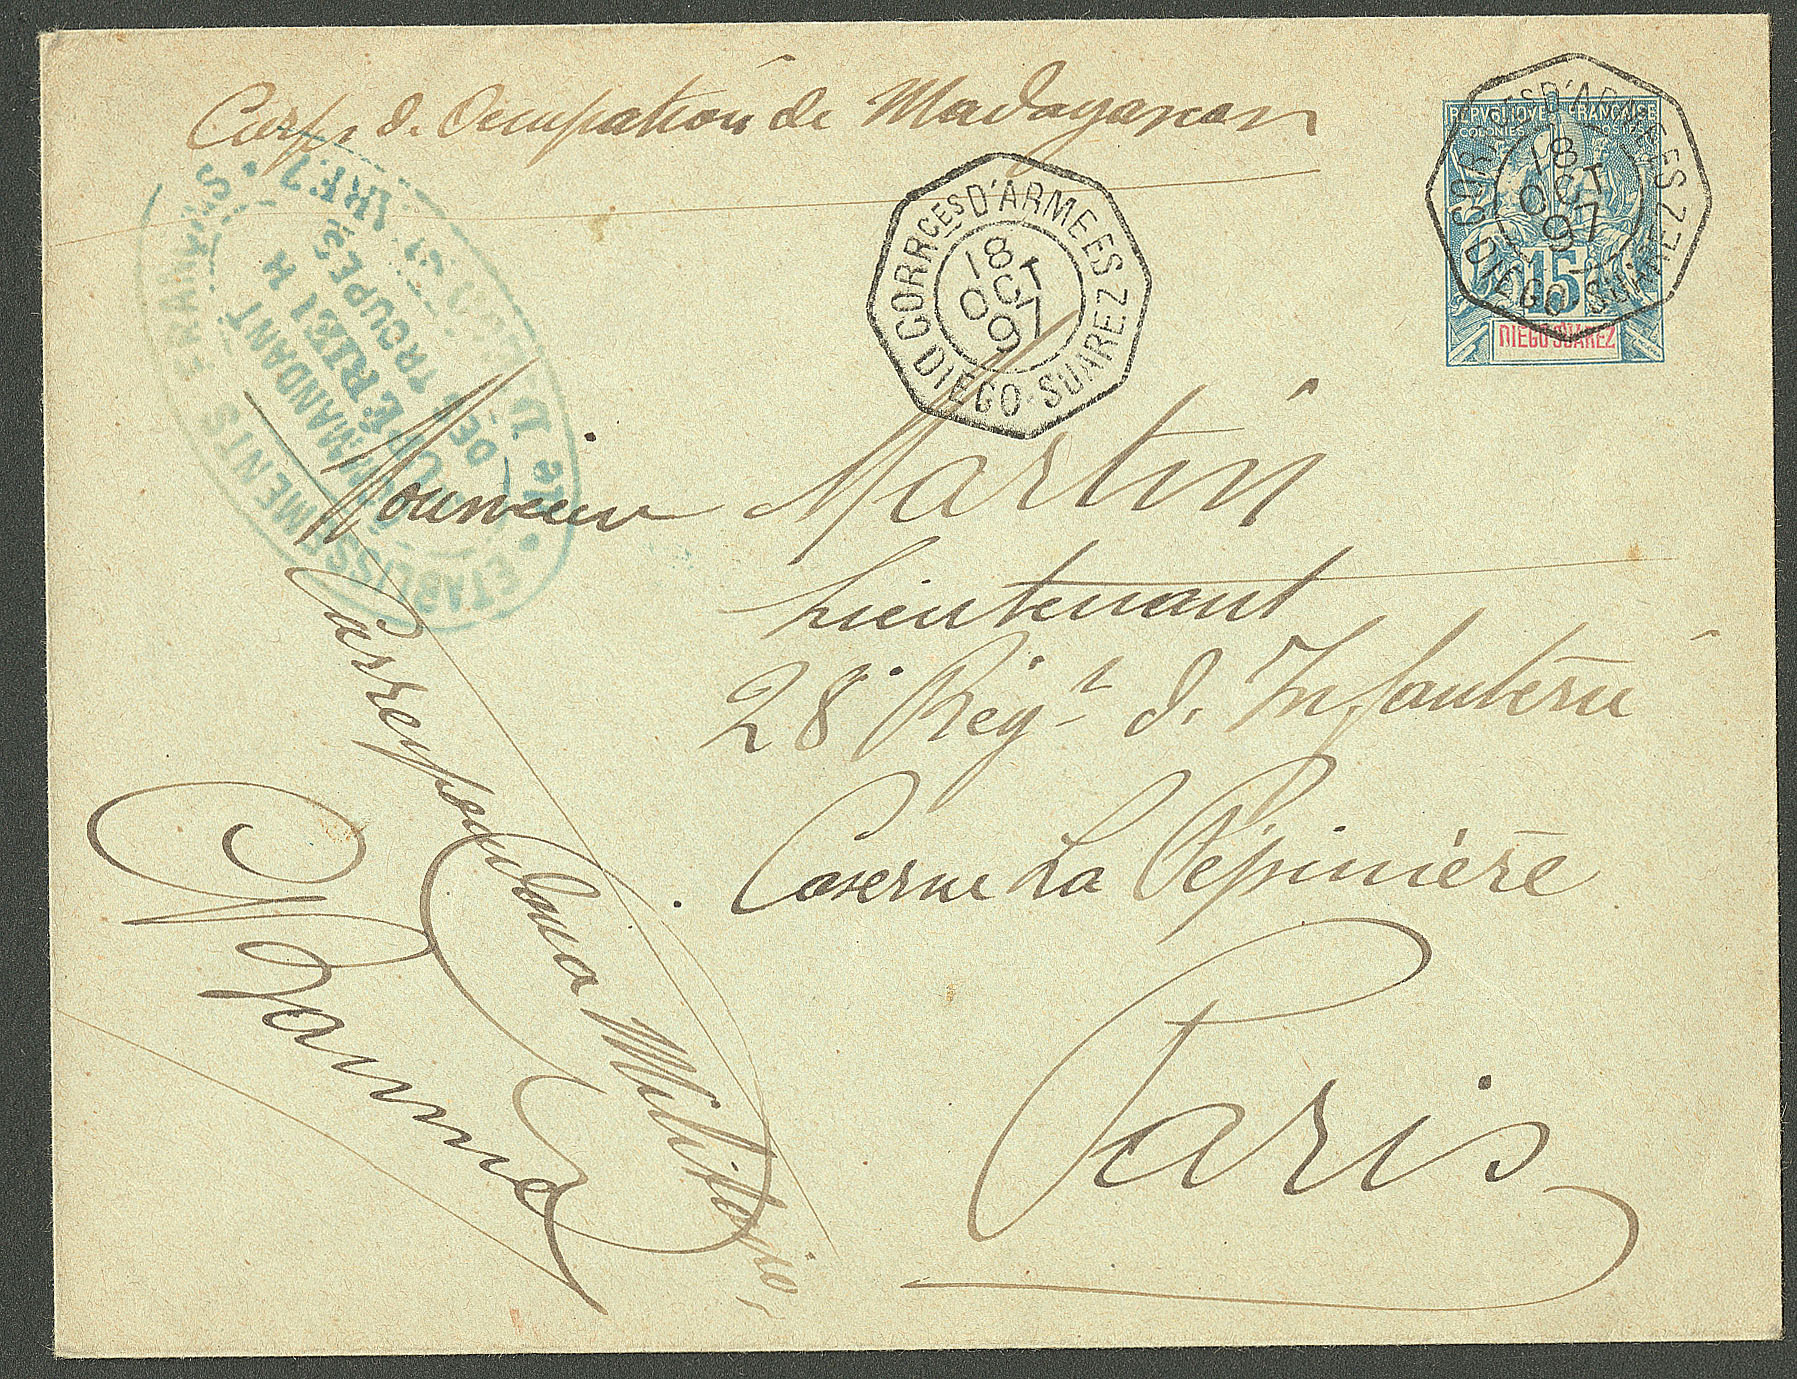 Corps de Occupation de Madagascar
CORRCES D'ARMEES
DIEGO-SUAREZ
18
OCT
97
CORRCES D'ARMEES
DIEGO-SUAREZ
18
OCT
97
REPUBLIQUE FRANÇAISE
COLONIES POSTES
15
DIEGO-SUAREZ
ETABLISSEMENTS FRANÇAIS
COMMANDANT
SUPÉRIEUR
DES TROUPES
Monsieur Martin
Lieutenant
28e Régt de Infanterie
Caserne La Pépinière
Paris
Correspondance Militaire